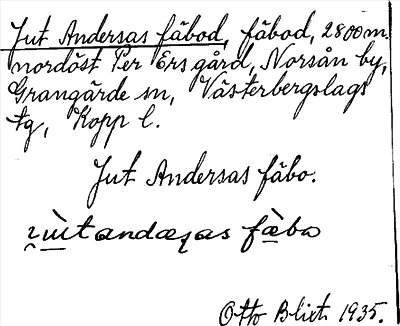 Jut Andersas fäbod, fäbod, 2800 m
nordöst Per Ers gård, Norsån by,
Grangärde sn, Västerbergslags
tg, Kopp l.
Jut Andersas fäbo.
Otto Blixt 1935.